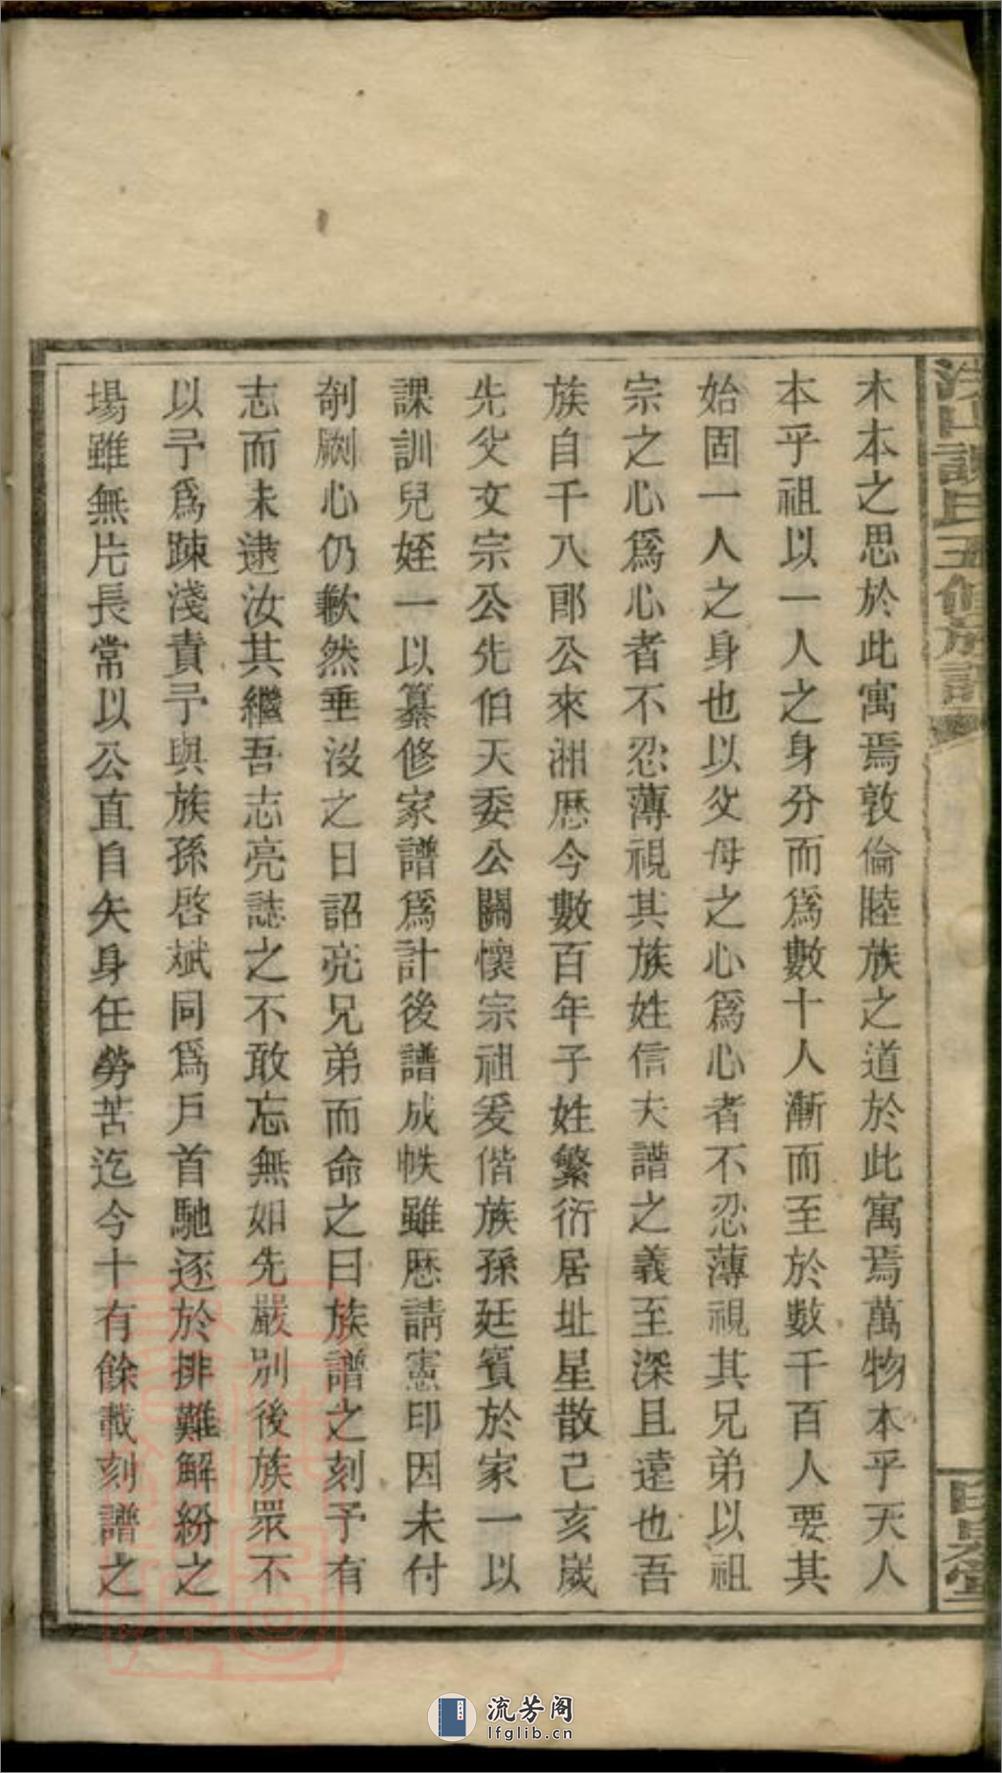 木本之思於此寓焉敦倫睦族之道於此寓焉萬物本乎天人
本乎祖以一人之身分而爲數十人漸而至於數千百人要其
始固一人之身也以父母之心爲心者不忍薄視其兄弟以祖
宗之心爲心者不忍薄視其族姓信夫譜之義至深且遠也吾
族自千八郎公來湘歷今數百年子姓繁衍居址星散己亥歲
先父文宗公先伯天委公關懷宗祖爰偕族孫廷賓於家一以
課訓兒姪一以纂修家譜爲計後譜成帙雖歷請憲印因未付
剞劂心仍歉然垂沒之日詔亮兄弟而命之曰族譜之刻予有
志而未逮汝其繼吾志亮誌之不敢忘無如先嚴別後族眾不
以予爲踈淺責予與族孫啓斌同爲戶首馳逐於排難解紛之
場雖無片長常以公直自矢身任勞苦迄今十有餘載刻譜之
氏五修族譜
流芳阁
lfglib.cn